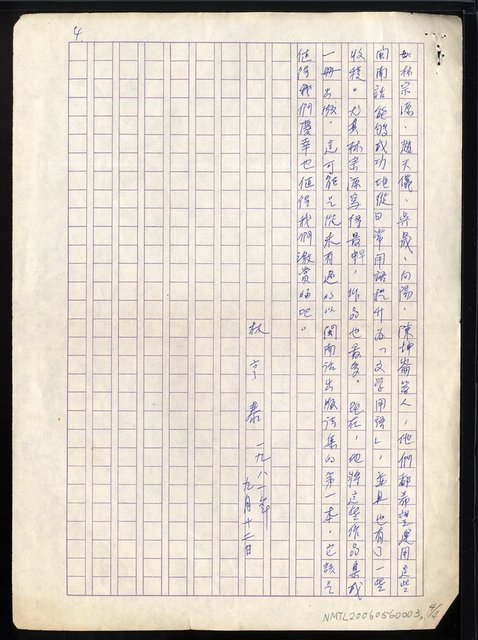 4.
如林宗源、趙天儀、吳晟、向陽、陳坤崙等人,他們都希望運用這些
閩南話能夠成功地從日常用語提升為「文学用語」,並且也有了一些
收穫。尤其林宗源寫得最早,作品也最多。現在,他將這些作品集成
一冊出版,這可能是從來有過的以閩南話出版詩集的第一本,它該是
值得我們慶幸也值得我們激賞的吧。
林亨泰 一九八一年
九月十二日
NMTL20060560003, 4/4